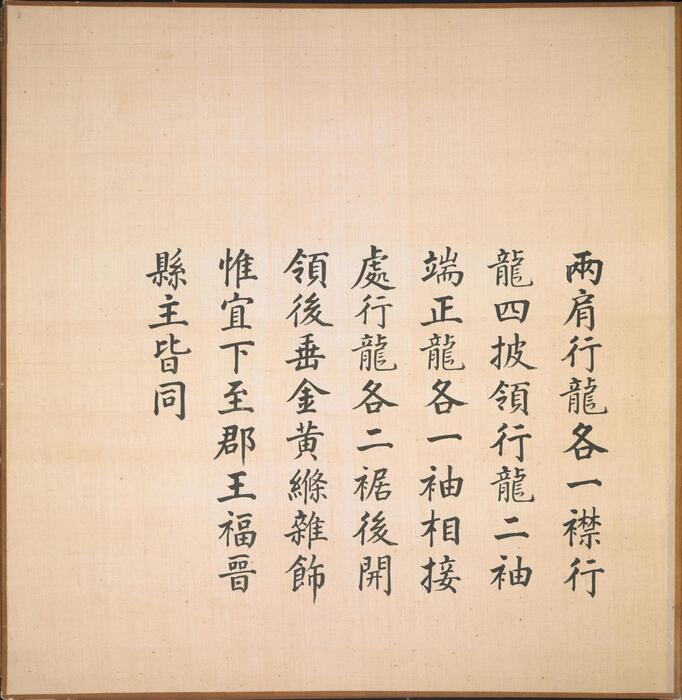 兩肩行龍各一襟行
龍四披領行龍二袖
端正龍各一袖相接
處行龍各二裾後開
領後垂金黃絛雜飾
惟宜下至郡王福晉
縣主皆同